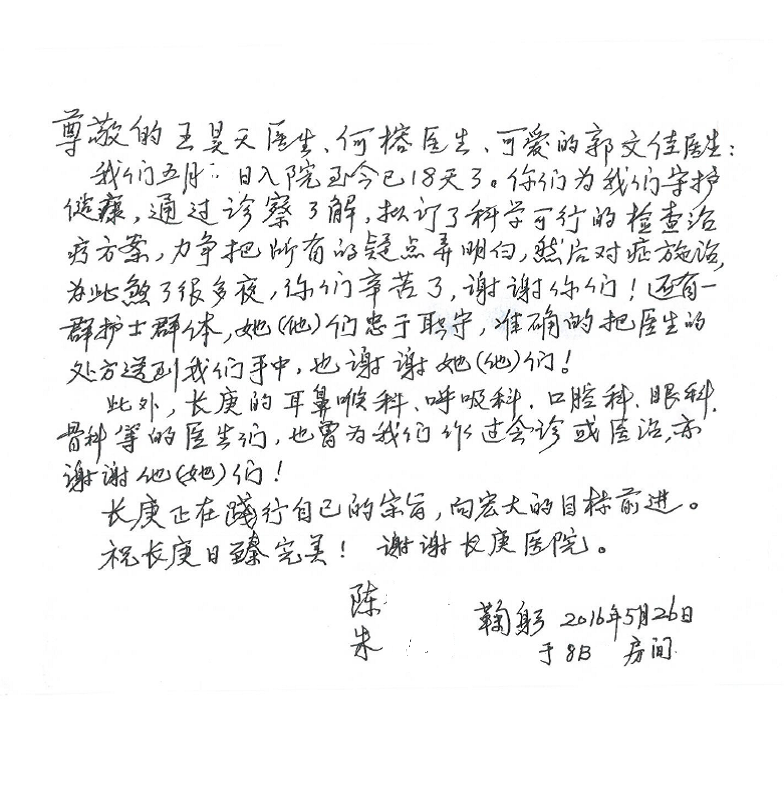 尊敬的王昊天医生、何榕医生、可爱的郭文佳医生：
我们五月 日入院至今已18天了。你们为我们守护
健康，通过诊察了解，拟订了科学可行的检查治
疗方案，力争把所有的疑点弄明白，然后对症施治，
为此熬了很多夜，你们辛苦了，谢谢你们！还有一
群护士群体，她(他)们忠于职守，准确的把医生的
处方送到我们手中，也谢谢她(他)们！
此外，长庚的耳鼻喉科、呼吸科、口腔科、眼科、
骨科等的医生们，也曾为我们作过会诊或医治，亦
谢谢他(她)们！
长庚正在践行自己的宗旨，向宏大的目标前进。
祝长庚日臻完美！ 谢谢长庚医院。
陈
朱
鞠躬 2016年5月26日
于8B 房间